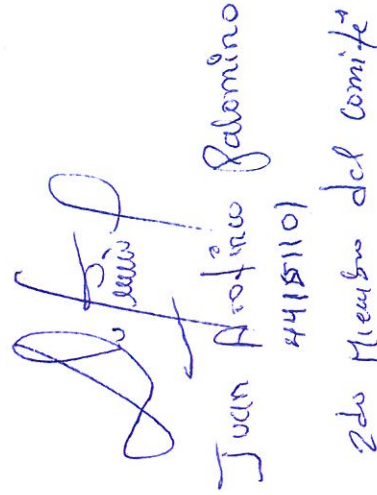 Juan Palomino
44151101
2do Miembro del comité